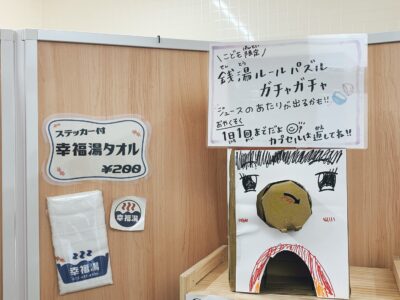 ステッカー付
幸福湯タオル
¥200
幸福湯
幸福湯
\こども限定/
げんてい
せん とう
銭湯ルールパズル
ガチャガチャ
ジュースのあたりが出るかも!!
おやくそく
1日1回までだよ
カプセルは返してね!!